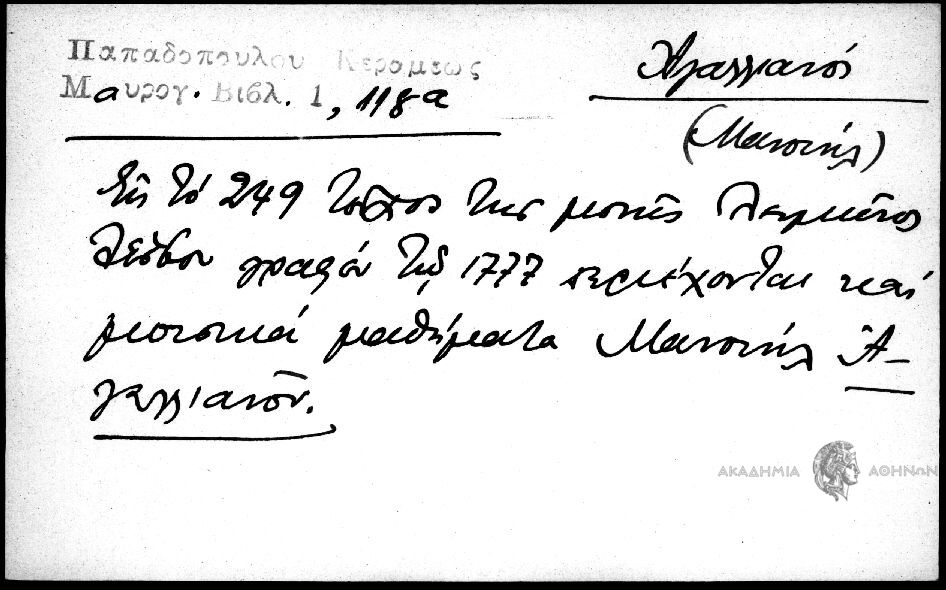 Παπαδοπουλου Κεραμεως
Μαυρογ. Βιβλ. 1, 118α
Ἀγαλλιανός
(Μανουήλ)
Εἰς τό 249 τεῦχος της μονῆς Λειμῶνος
Λέσβου γραφέν τῷ 1777 περιέχονται καί
μουσικά μαθήματα Μανουήλ Ἀ-
γαλλιανοῦ.
ΑΚΑΔΗΜΙΑ ΑΘΗΝΩΝ